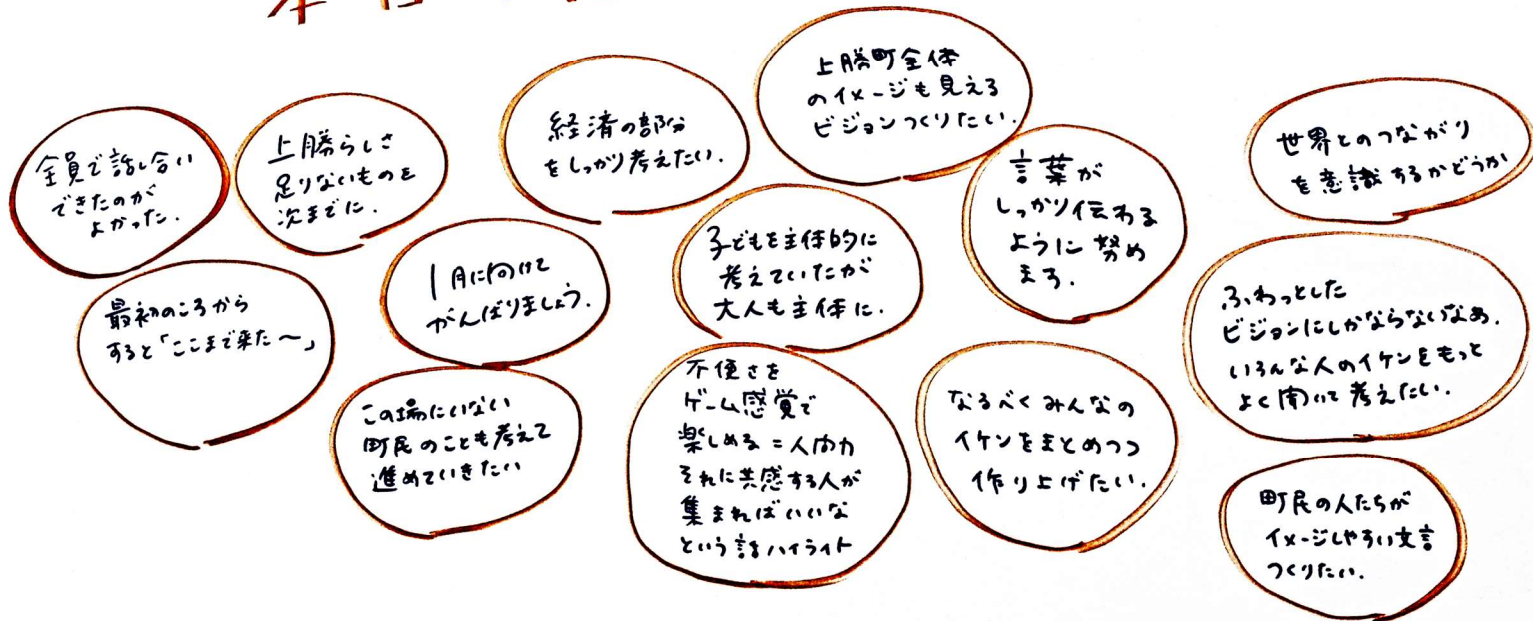 全員で話し合い
できたのが
よかった.
上勝らしさ
足りないものを
次までに.
経済の部分
をしっかり考えたい.
上勝町全体
のイメージも見える
ビジョンつくりたい.
言葉が
しっかり伝わる
ように努め
ます.
世界とのつながり
を意識するかどうか
最初のころから
すると「ここまで来た〜」
1月に向けて
がんばりましょう.
子どもを主体的に
考えていたが
大人も主体に.
ふわっとした
ビジョンにしかならないなぁ.
いろんな人のイケンをもっと
よく聞いて考えたい.
この場にいない
町民のことも考えて
進めていきたい
不便さを
ゲーム感覚で
楽しめる=人間力
それに共感する人が
集まればいいな
という話ハイライト
なるべくみんなの
イケンをまとめつつ
作り上げたい.
町民の人たちが
イメージしやすい文言
つくりたい.